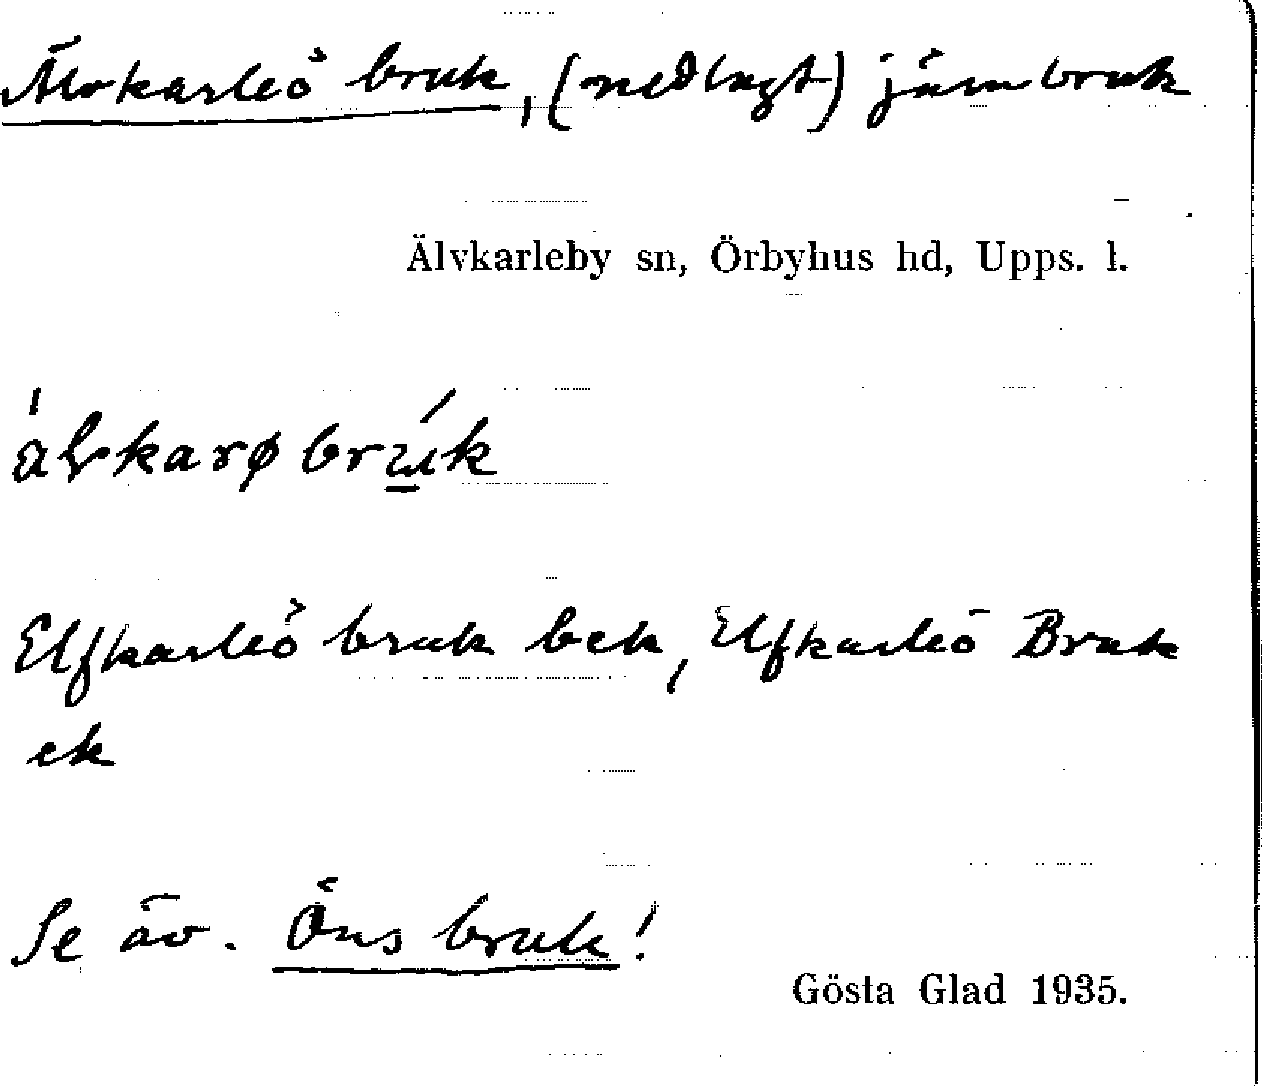 Älvkarleö bruk, (nedlagt) järnbruk
Älvkarleby sn, Örbyhus hd, Upps. l.
älvkarø brúk
Elfkarleö bruk bek, Elfkarleö Bruk
ek
Se äv. Öns bruk!
Gösta Glad 1935.